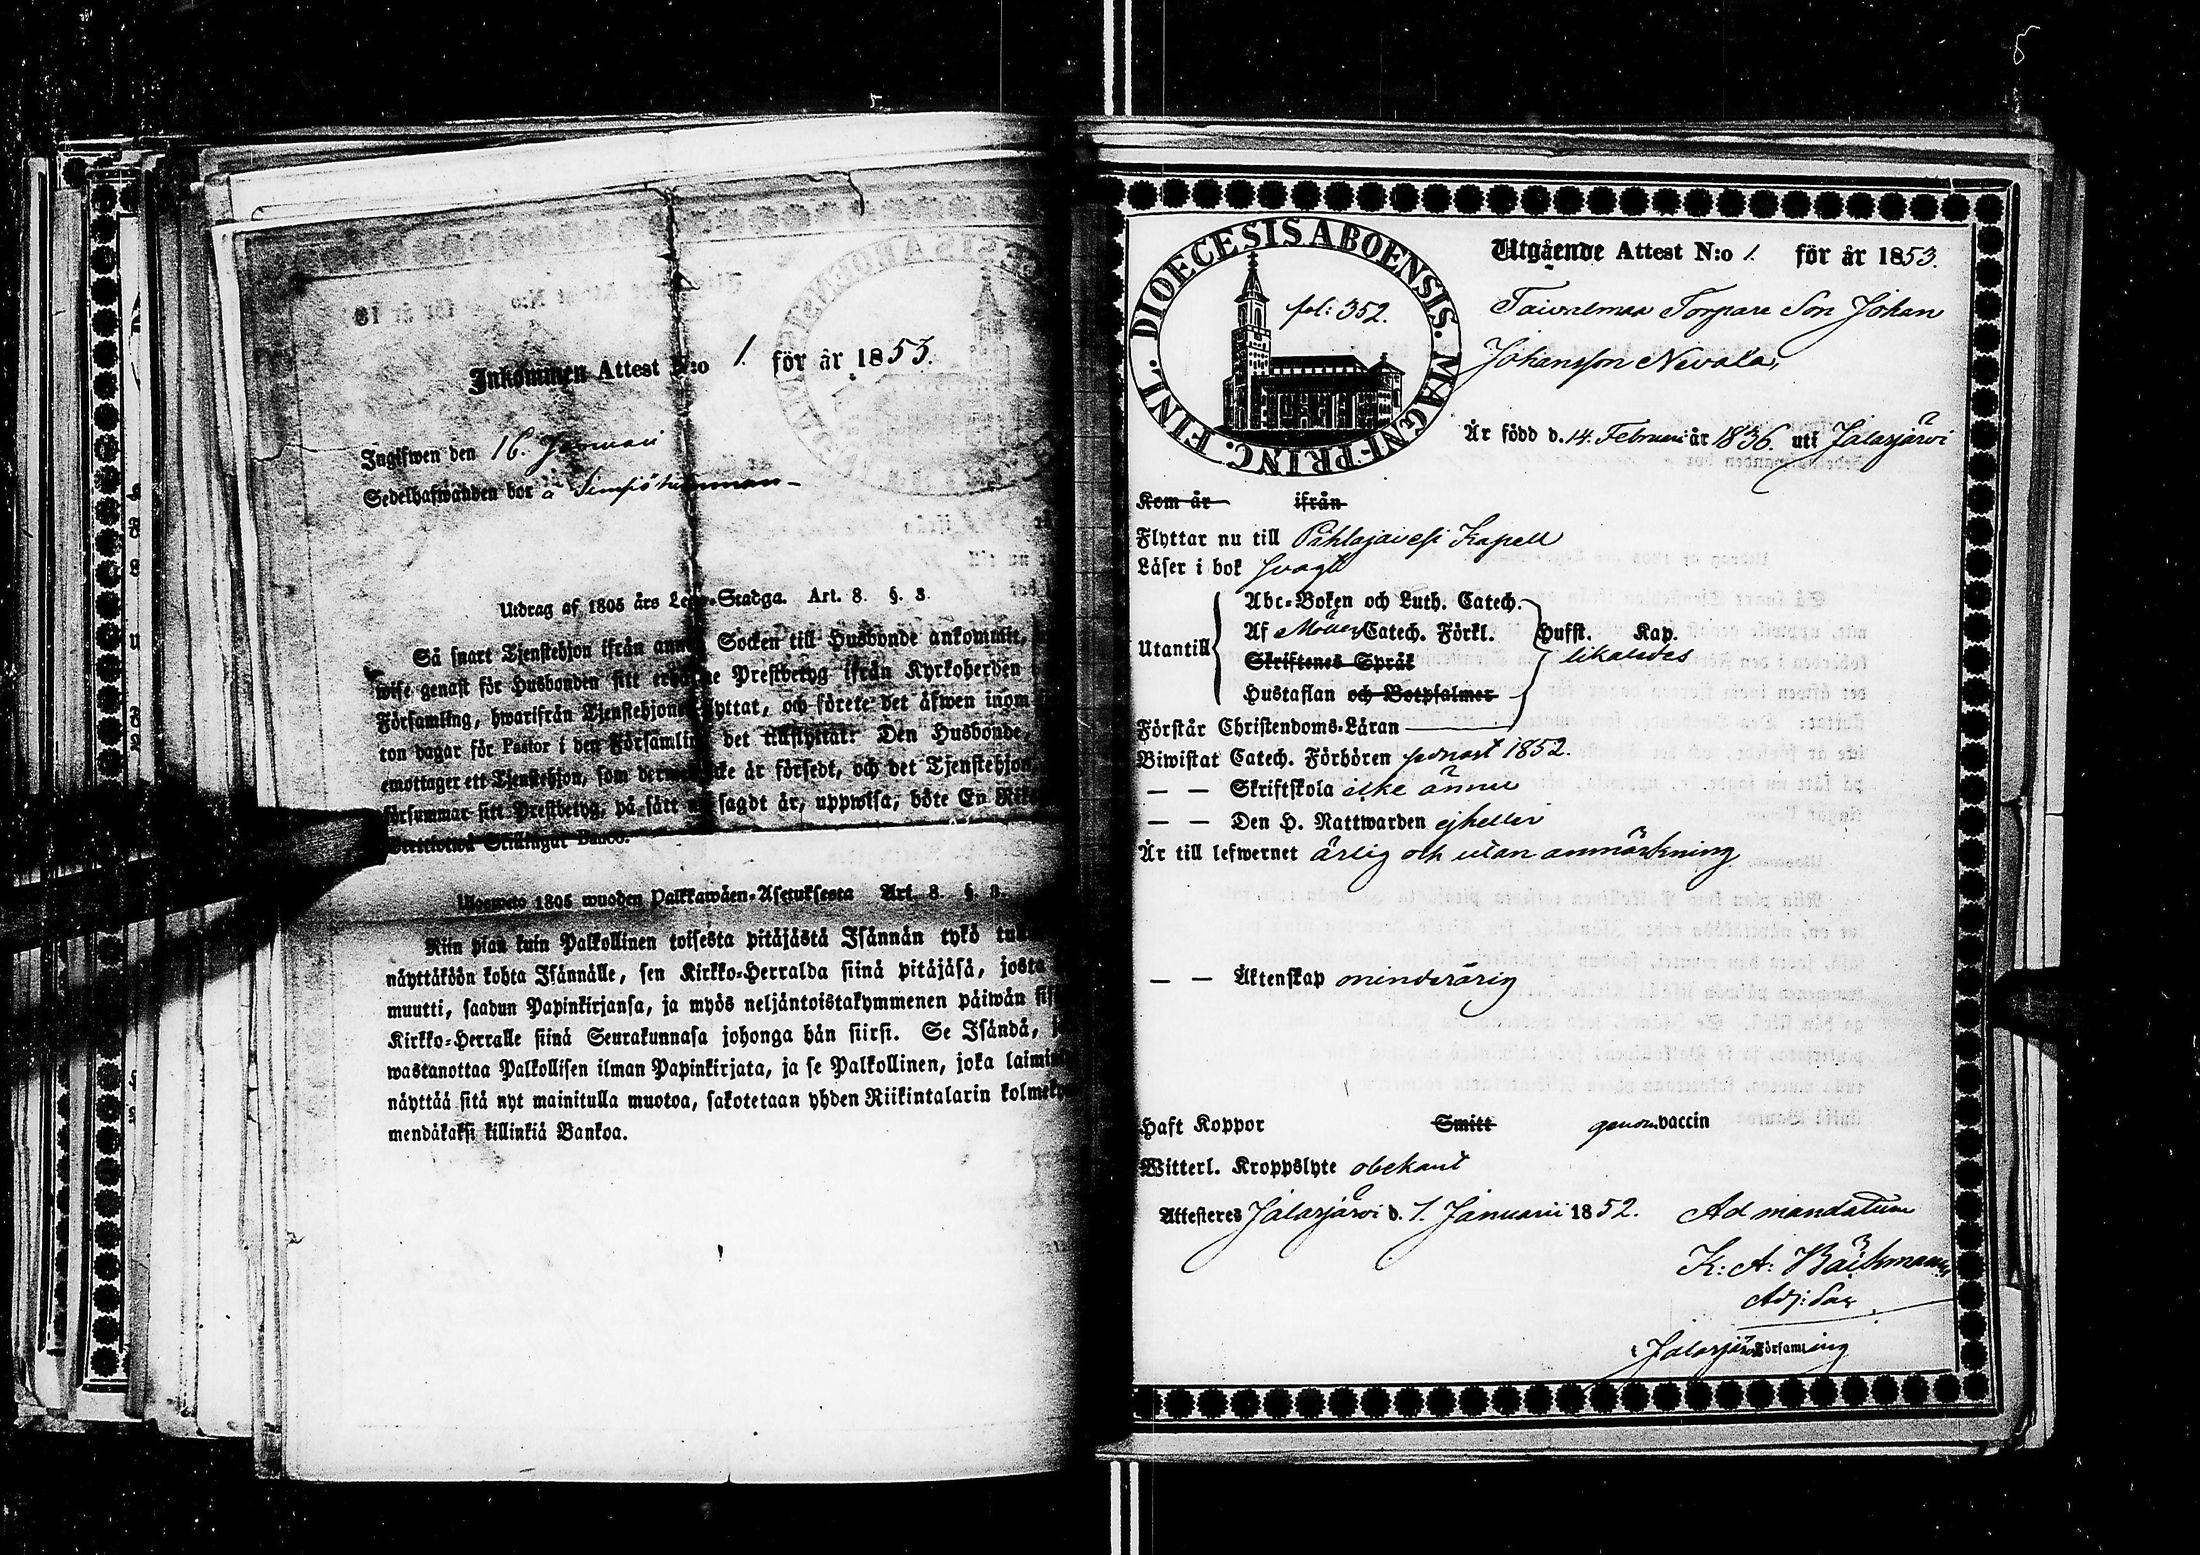 5
Inkommen Attest N:o 1. för år 1853.
Ingifwen den 16. Januari
Sedelhafwanden bor å
Utdrag af 1805 års Lego-Stadga. Art. 8. §. 3.
Så snart Tjenstehjon ifrån annan Socken till Husbonde ankommit,
wise genast för Husbonden sitt erhållne Prestbetyg ifrån Kyrkoherden
Församling, hwarifrån Tjenstehjonet flyttat, och förete det äfwen inom
ton dagar för Pastor i den Församling det tillflyttat: Den Husbonde,
emottager ett Tjenstehjon, som dermed icke är försedt, och det Tjenstehjon
försummar sitt Prestbetyg, på sätt nu sagdt är, uppwisa, böte En Riks
Skillingar Banco.
Uloswето 1805 wuoden Palkkawäen-Asetuksesta Art. 8. §. 3.
Niin pian kuin Palkollinen toisesta pitäjästä Isännän tykö
näyttäköön kohta Isännälle, sen Kirkko-Herralda siinä pitäjäsä, josta
muutti, saadun Papinkirjansa, ja myös neljäntoistakymmenen päiwän
Kirkko-Herralle siinä Seurakunnasa johonga hän siirsi. Se Isändä,
wastanottaa Palkollisen ilman Papinkirjata, ja se Palkollinen, joka
näyttää sitä nyt mainitulla muotoa, sakotetaan yhden Riikintalarin
mendäkaksi killinkiä Bankoa.
FINL. DIOECESIS ABOENSIS. MAGNI-PRINC.
fol: 352.
Utgående Attest N:o 1. för år 1853.
Taivalmaa Torpare Son Johan
Johansson Nevala,
Är född d. 14. Februari år 1836. uti Jalasjärvi
Kom år ifrån
Flyttar nu till Pihlajavesi Kapell
Läser i bok svagt
Utantill
Abc-Boken och Luth. Catech.
Af Möllers Catech. Förkl.
Hufst. Kap.
likaledes
Skriftenes Språk
Hustaflan och Botpsalmer
Förstår Christendoms-Läran
Biwistat Catech. Förhören senast 1852.
— — Skriftskola icke ännu
— — Den H. Nattwarden ejheller
Är till lefwernet ärlig och utan anmärkning
— — Äktenskap minderårig
Haft Koppor Smitt genom vaccin
Witterl. Kroppslyte obekant
Attesteres Jalasjärvi d. 1. Januarii 1852. Ad mandatum
K: A: Bäckman
Adj: Sac
i Jalasjärvi Församling